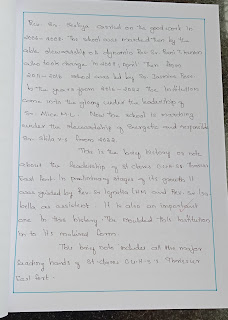 Rev. Sr. carried on the good work in
2006-2008. The school was moulded then by the
able stewardship of dynamic Rev Sr
who took charge in 2008, April. Then from
2011-2016 school was led by the
In the years from 2016-2022 The Institution
came into the glory under the leadership of
Sr. Alice M.L Now the school is marching
under the stewardship of Energetic and responsible
Sr. from 2022.
This is the history in note
about the leadership of St Clares Thrissur
East fort. In preliminary stages of its growth it
was guided by Rev. Sr Ignatia and Rev. Sr Isa
bella as assistant. It is also an important
one in this history. The moulded this Institution
in to its matured form.
This note includes all the major
leading hands of St Clares Thrissur
East Fort.